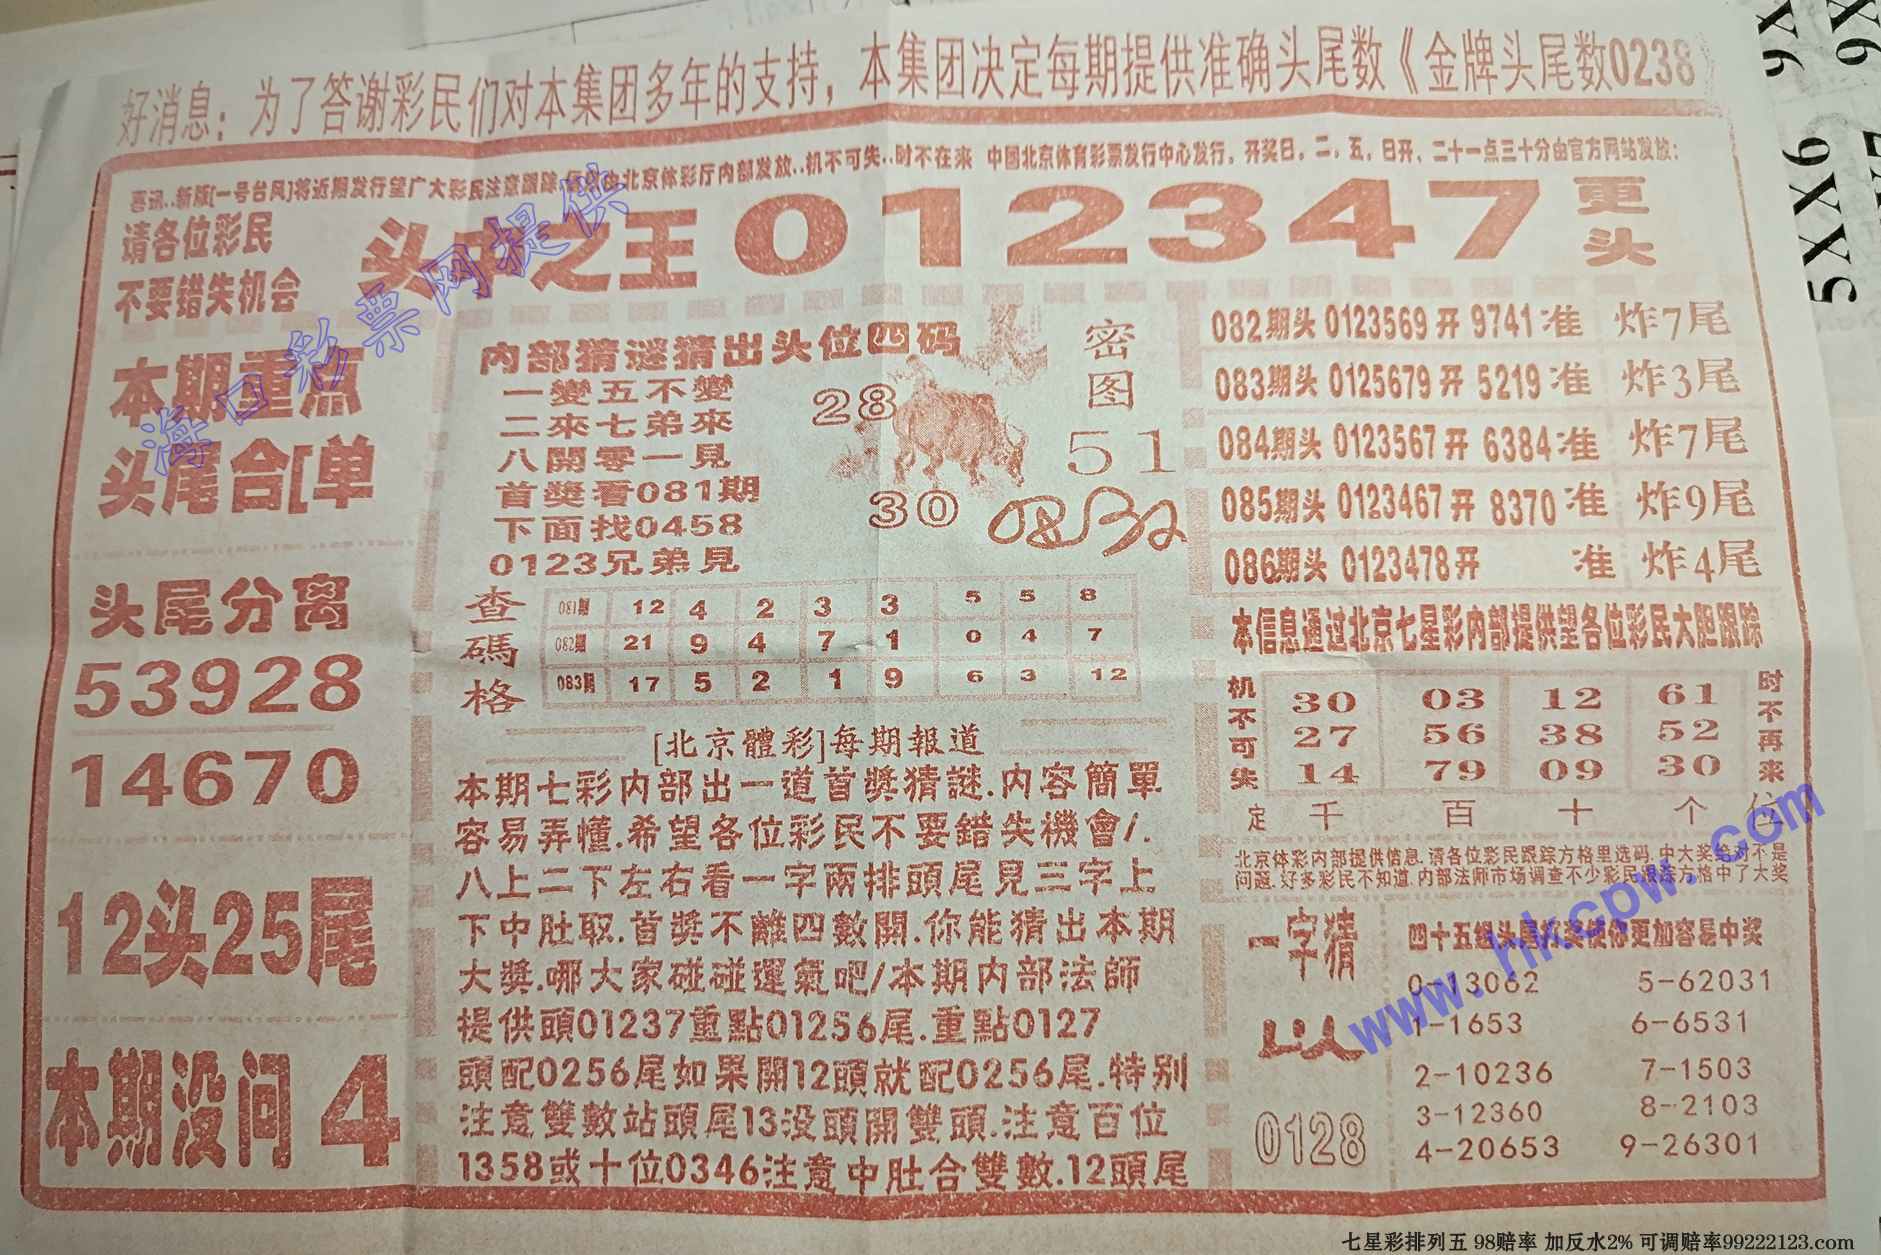 好消息：为了答谢彩民们对本集团多年的支持，本集团决定每期提供准确头尾数《金牌头尾数0238》
喜讯..新版[一号台风]将近期发行望广大彩民注意跟踪 北京体彩厅内部发放..机不可失..时不在来 中国北京体育彩票发行中心发行，开奖日，二，五，日开，二十一点三十分由官方网站发放：
请各位彩民
不要错失机会
头中之王 012347 更头
本期重点
头尾合[单
头尾分离
53928
14670
12头25尾
本期没问 4
内部猜谜猜出头位四码
一變五不變
二來七弟來
八開零一見
首獎看081期
下面找0458
0123兄弟見
28
30
密图
51
082期头 0123569 开 9741 准 炸7尾
083期头 0125679 开 5219 准 炸3尾
084期头 0123567 开 6384 准 炸7尾
085期头 0123467 开 8370 准 炸9尾
086期头 0123478 开 准 炸4尾
查碼格
081期 12 4 2 3 3 5 5 8
082期 21 9 4 7 1 0 4 7
083期 17 5 2 1 9 6 3 12
[北京體彩]每期報道
本期七彩内部出一道首獎猜謎.内容簡單
容易弄懂.希望各位彩民不要錯失機會/.
八上二下左右看一字兩排頭尾見三字上
下中肚取.首獎不離四數開.你能猜出本期
大獎.哪大家碰碰運氣吧/本期内部法師
提供頭01237重點01256尾.重點0127
頭配0256尾如果開12頭就配0256尾.特别
注意雙數站頭尾13没頭開雙頭.注意百位
1358或十位0346注意中肚合雙數.12頭尾
本信息通过北京七星彩内部提供望各位彩民大胆跟踪
机不可失
30 03 12 61
27 56 38 52
14 79 09 30
时不再来
定 千 百 十 个 位
北京体彩内部提供信息.请各位彩民跟踪方格里选码.中大奖绝对不是
问题.好多彩民不知道.内部法师市场调查不少彩民跟踪方格中了大奖
一字猜
0128
四十五组头尾 奖使你更加容易中奖
0-13062 5-62031
1-1653 6-6531
2-10236 7-1503
3-12360 8-2103
4-20653 9-26301
海口彩票网提供
www.hkcpw.com
9X 9X
5XX6
七星彩排列五 98赔率 加反水2% 可调赔率99222123.com